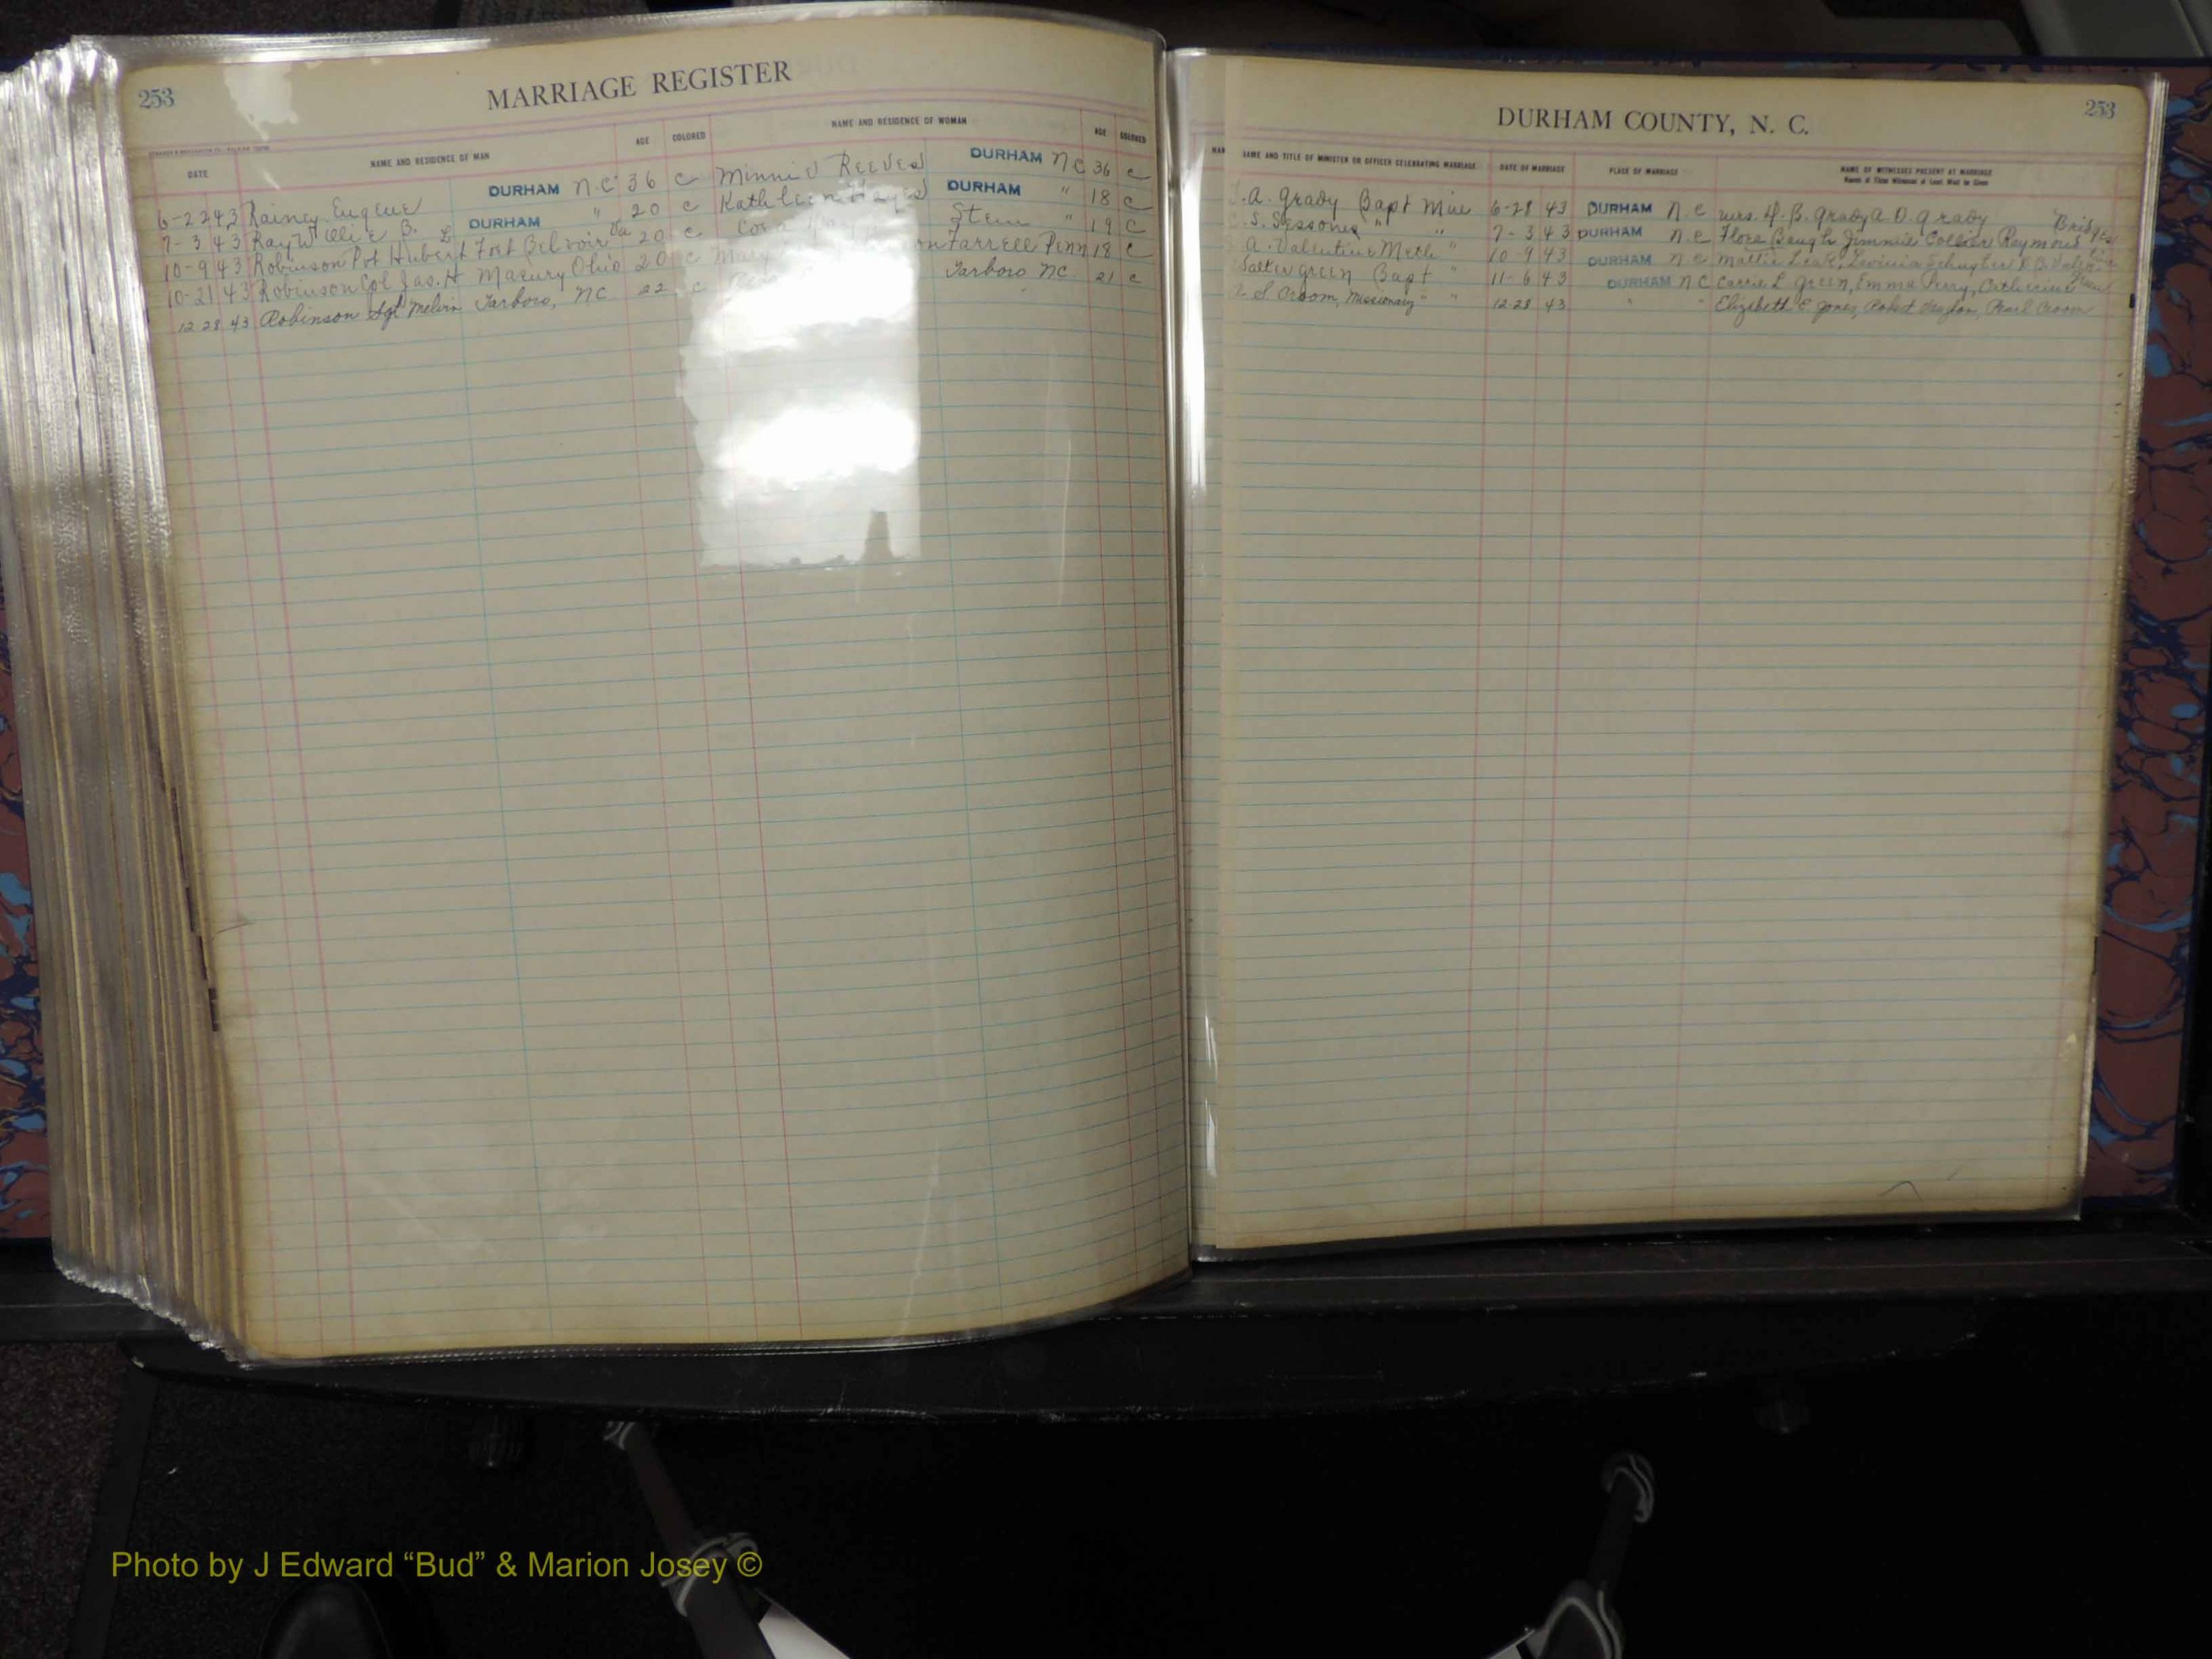 253
MARRIAGE REGISTER
DATE NAME AND RESIDENCE OF MAN AGE COLORED NAME AND RESIDENCE OF WOMAN AGE COLORED
6-22 43 Rainey Eugene DURHAM N.C 36 c Minnie Reeves DURHAM N C 36 c
7-3 43 Ray Willie B. DURHAM " 20 c Kathleen Hayes DURHAM " 18 c
10-9 43 Robinson Pvt Hubert L Fort Belvoir Va 20 c Cora Stem " 19 c
10-21 43 Robinson Cpl Jas. H Masury Ohio 20 c Mary Farrell Penn 18 c
12 28 43 Robinson Sgt Melvin Tarboro, NC 22 c Tarboro NC 21 c
DURHAM COUNTY, N. C.
253
NAME AND TITLE OF MINISTER OR OFFICER CELEBRATING MARRIAGE DATE OF MARRIAGE PLACE OF MARRIAGE NAME OF WITNESSES PRESENT AT MARRIAGE
Names of Three Witnesses at Least Must be Given
A. Grady Bapt Min 6-28 43 DURHAM N. C Mrs. H. B. Grady A. O. Grady
S. Sessoms " " 7-3 43 DURHAM N. C Flora Baugh Jimmie Collier Raymond Bridges
A. Valentine Meth " 10-9 43 DURHAM N. C Mattie Leak,
Green Bapt " 11-6 43 DURHAM N C Carrie L Green, Emma Perry,
S. Croom, Missionary " " 12 28 43 " " Elizabeth C. Jones, Pearl Croom
Photo by J Edward “Bud” & Marion Josey ©